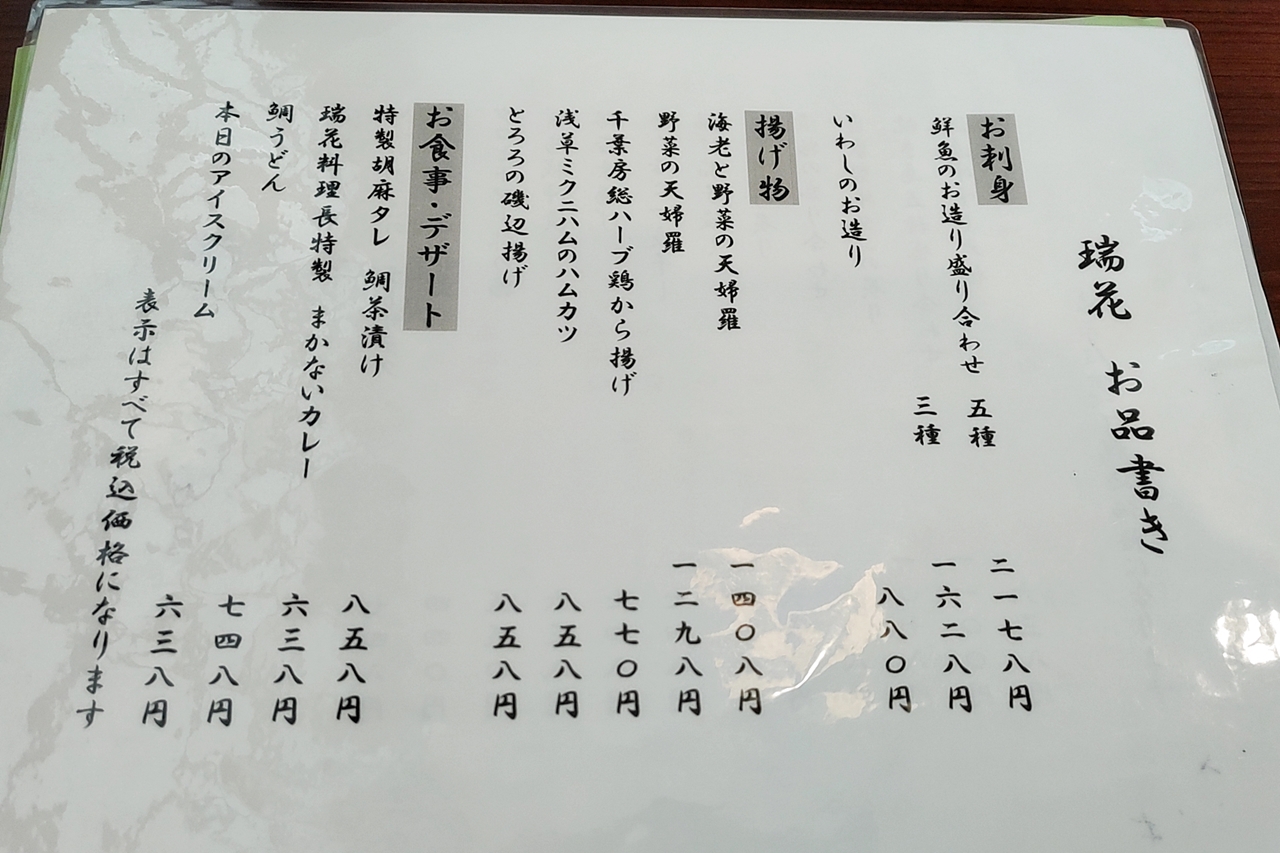 瑞花 お品書き
お刺身
鮮魚のお造り盛り合わせ 五種 二一七八円
三種 一六二八円
いわしのお造り 八八〇円
揚げ物
海老と野菜の天婦羅 一四〇八円
野菜の天婦羅 一二九八円
千葉房総ハーブ鶏から揚げ 七七〇円
浅草ミクニハムのハムカツ 八五八円
とろろの磯辺揚げ 八五八円
お食事・デザート
特製胡麻タレ 鯛茶漬け 八五八円
瑞花料理長特製 まかないカレー 六三八円
鯛うどん 七四八円
本日のアイスクリーム 六三八円
表示はすべて税込価格になります